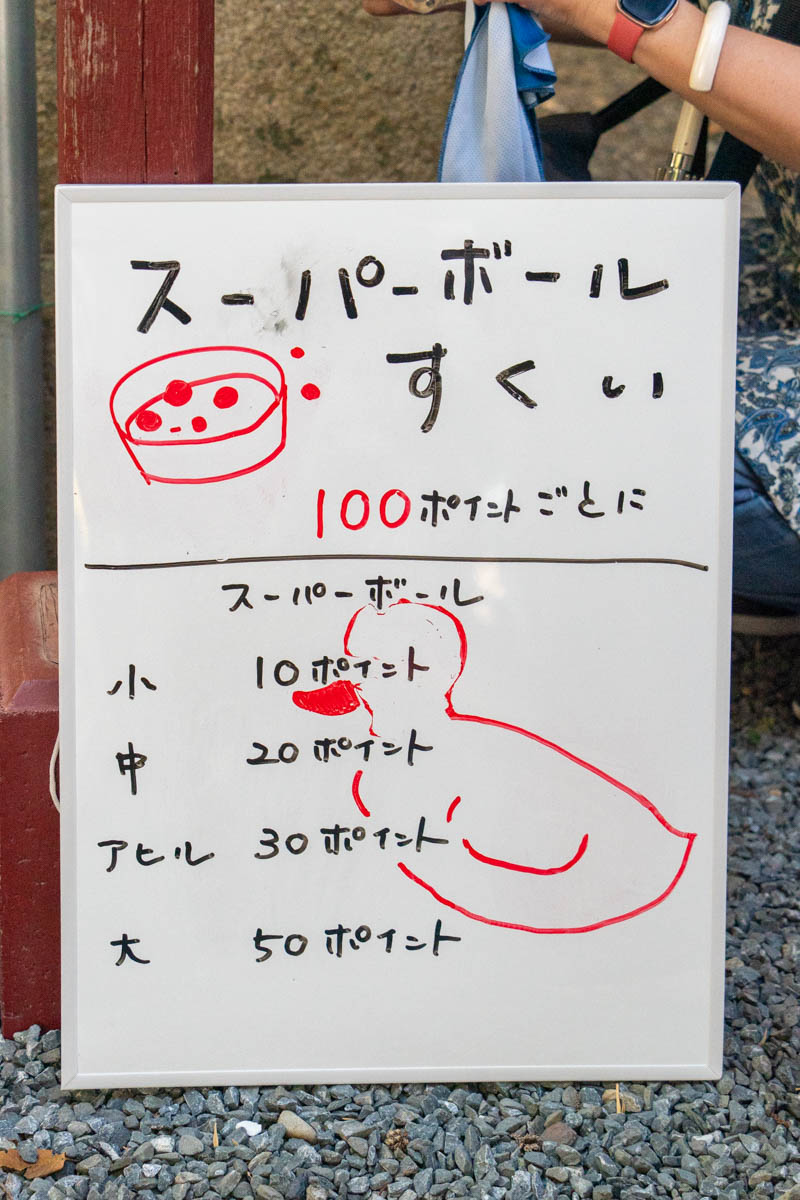 スーパーボール
すくい
100ポイントごとに
スーパーボール
小 10ポイント
中 20ポイント
アヒル 30ポイント
大 50ポイント